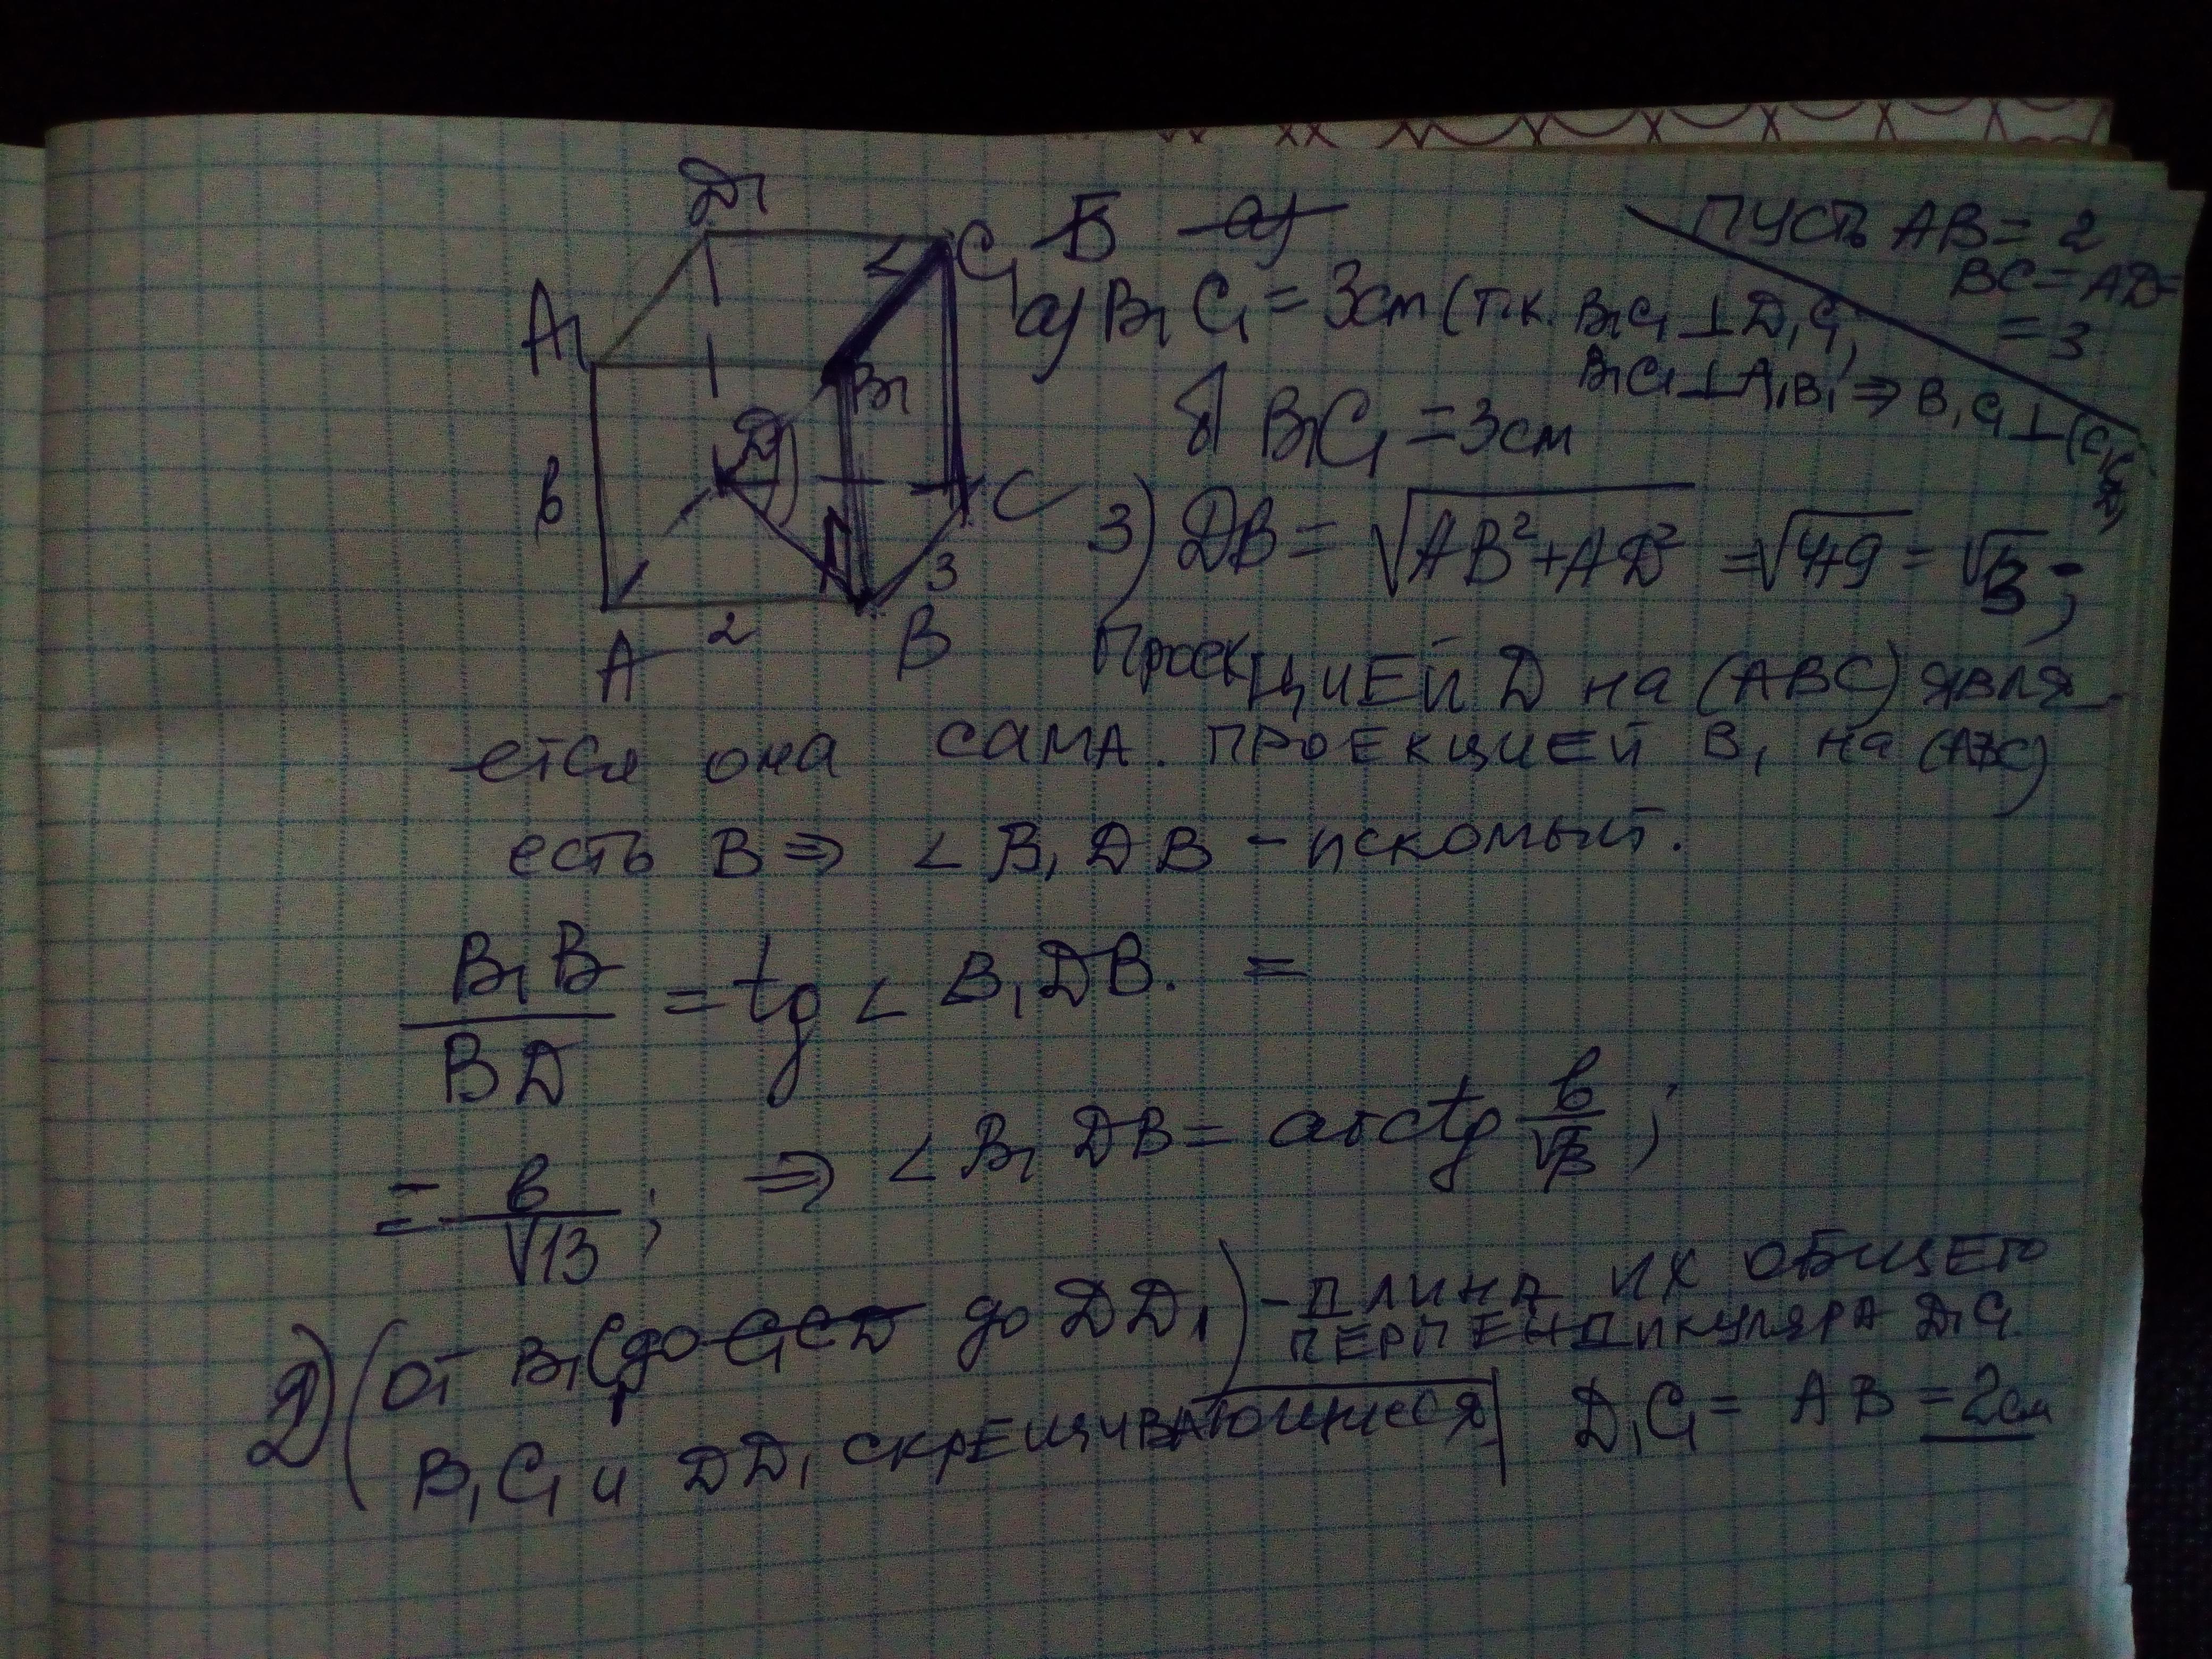 D1
C1
A1
B1
D
в
C
3
2
A
B
Б а)
ПУСТЬ AB = 2
BC = AD =
= 3
а) B1C1 = 3см (т.к. B1C1 ⊥ D1C1,
B1C1 ⊥ A1B1 ⇒ B1C1 ⊥ (C1CD)
б) B1C1 = 3см
3) DB = √AB²+AD² = √4+9 = √13;
ПроекцИЕЙ D на (ABC) явля
ется она сама. ПРОЕКЦИЕЙ B1 на (ABC)
есть B ⇒ ∠B1DB - искомый.
B1B / BD = tg ∠B1DB. =
= в / √13; ⇒ ∠B1DB = arctg в / √13;
2) (от B1C1 до C1CD до DD1) - ДЛИНА ИХ ОБЩЕГО
ПЕРПЕНДИКУЛЯРА D1C1.
B1C1 и DD1 скрещивающиеся | D1C1 = AB = 2см